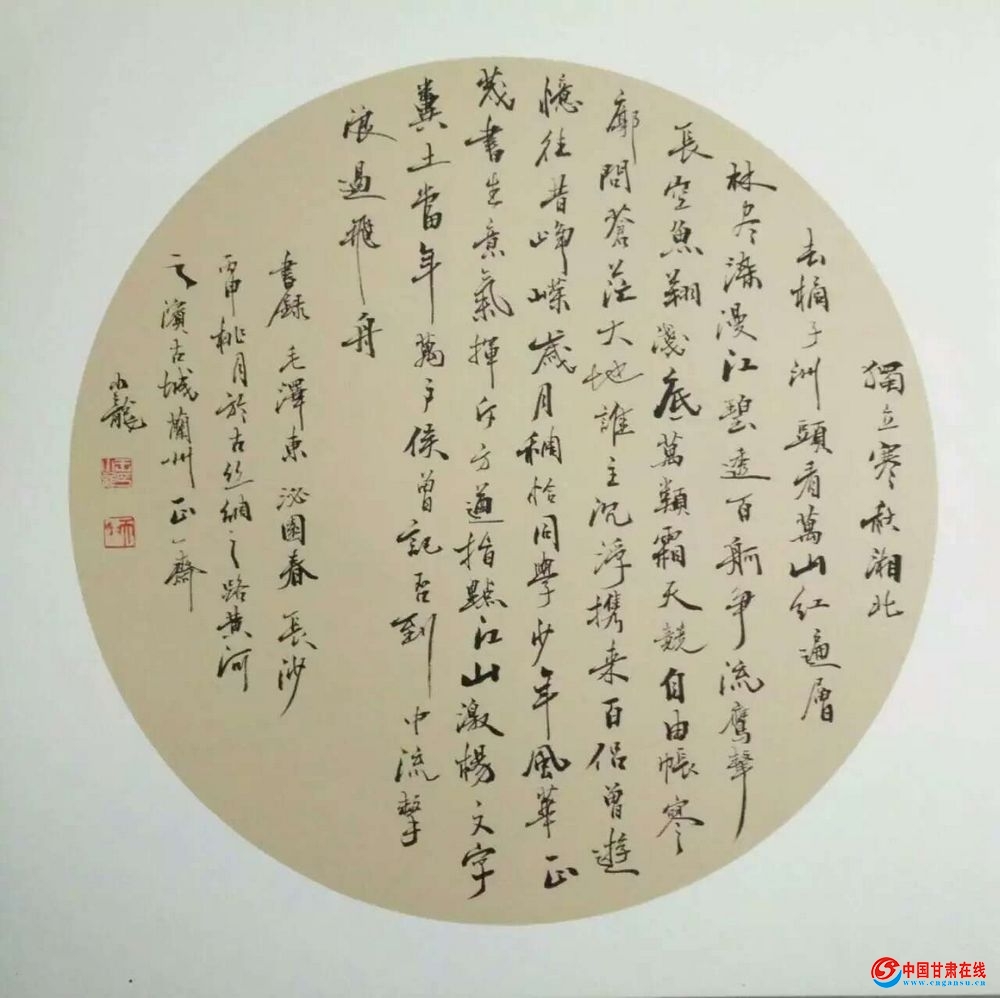 獨立寒秋湘北
去橘子洲頭看萬山紅遍層
林盡染漫江碧透百舸爭流鷹擊
長空魚翔淺底萬類霜天競自由帳寥
廓問蒼茫大地誰主沉浮携來百侣曾遊
憶往昔崢嶸歲月稠恰同學少年風華正
茂書生意氣揮斥方遒指點江山激楊文字
糞土當年萬戶侯曾記否到中流擊
浪遏飛舟
書錄毛澤東沁園春長沙
丙申桃月於古丝綢之路黄河
之濱古城蘭州正一齋
小龍
中国甘肃在线
www.cngansu.cn